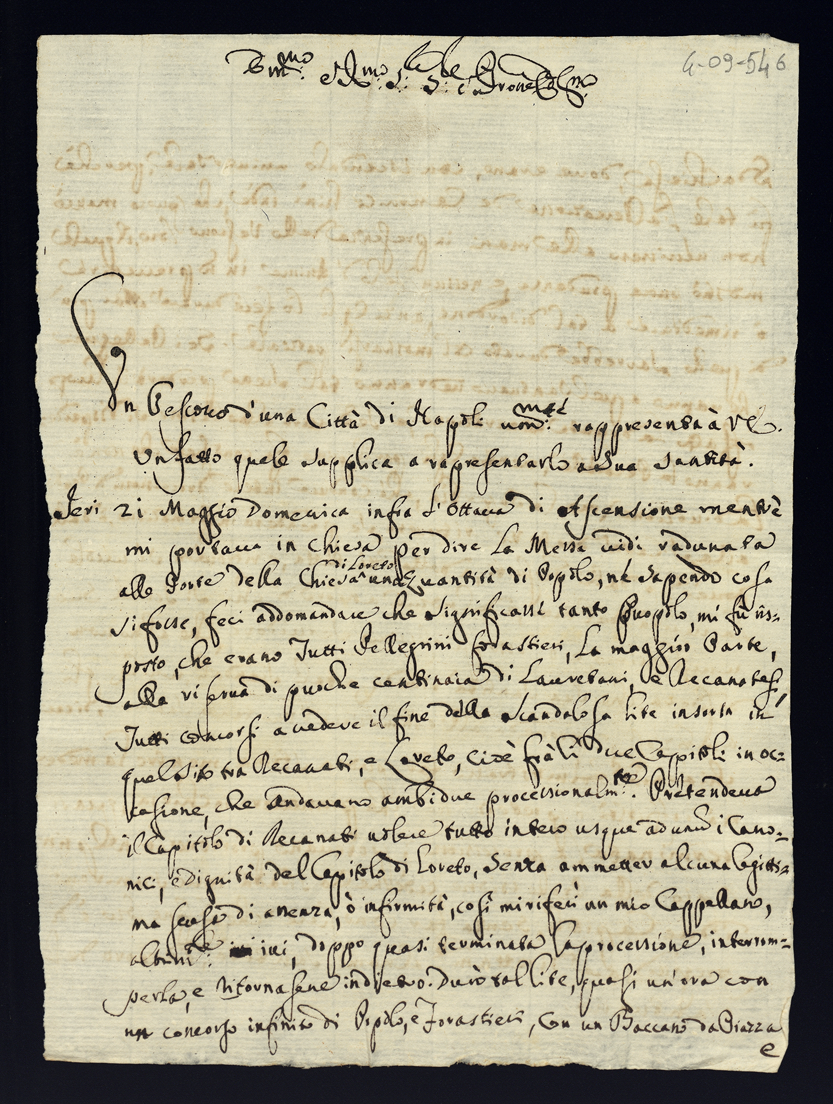 4-09-546
Em.mo e R.mo S.r S.r e Padrone Col.mo
Un Vescovo d'una Città di Napoli rappresenta à V.E.
un fatto quale supplica a rapresentarlo a Sua Santità.
Jeri 21 Maggio Domenica infra l'Ottava di Ascensione mentre
mi portava in Chiesa per dire la Messa vidi radunata
alle Porte della Chiesa di Loreto una Quantità di Popolo, nè sapendo cosa
si fosse, feci addomandare che significasse tanto Puopolo, mi fù ris-
posto, che erano Tutti Pellegrini forastieri, La maggior Parte,
alla riserva di puoche centinaia di Lauretani, e Recanatesi
Tutti concorsi a vedere il fine della Scandalosa lite insorta in
quel sito tra Recanati, e Loreto, cioè frà li due Capitoli in oc-
casione, che andavano ambidue processionalm.te. Pretendeva
il Capitolo di Recanati volere tutto intero usque ad unum i Cano-
nici, e Dignità del Capitolo di Loreto, senza ammetter alcuna legitti-
ma scusa di assenza, ò infirmità, così mi riferì un mio Cappellano,
altrim.te ivi, doppo quasi terminata la processione, interrom-
perla, e ritornasene indietro. Durò tal lite, quasi un'ora con
un concorso infinito di Popolo, e Forastieri, con un Baccano da Piazza
e